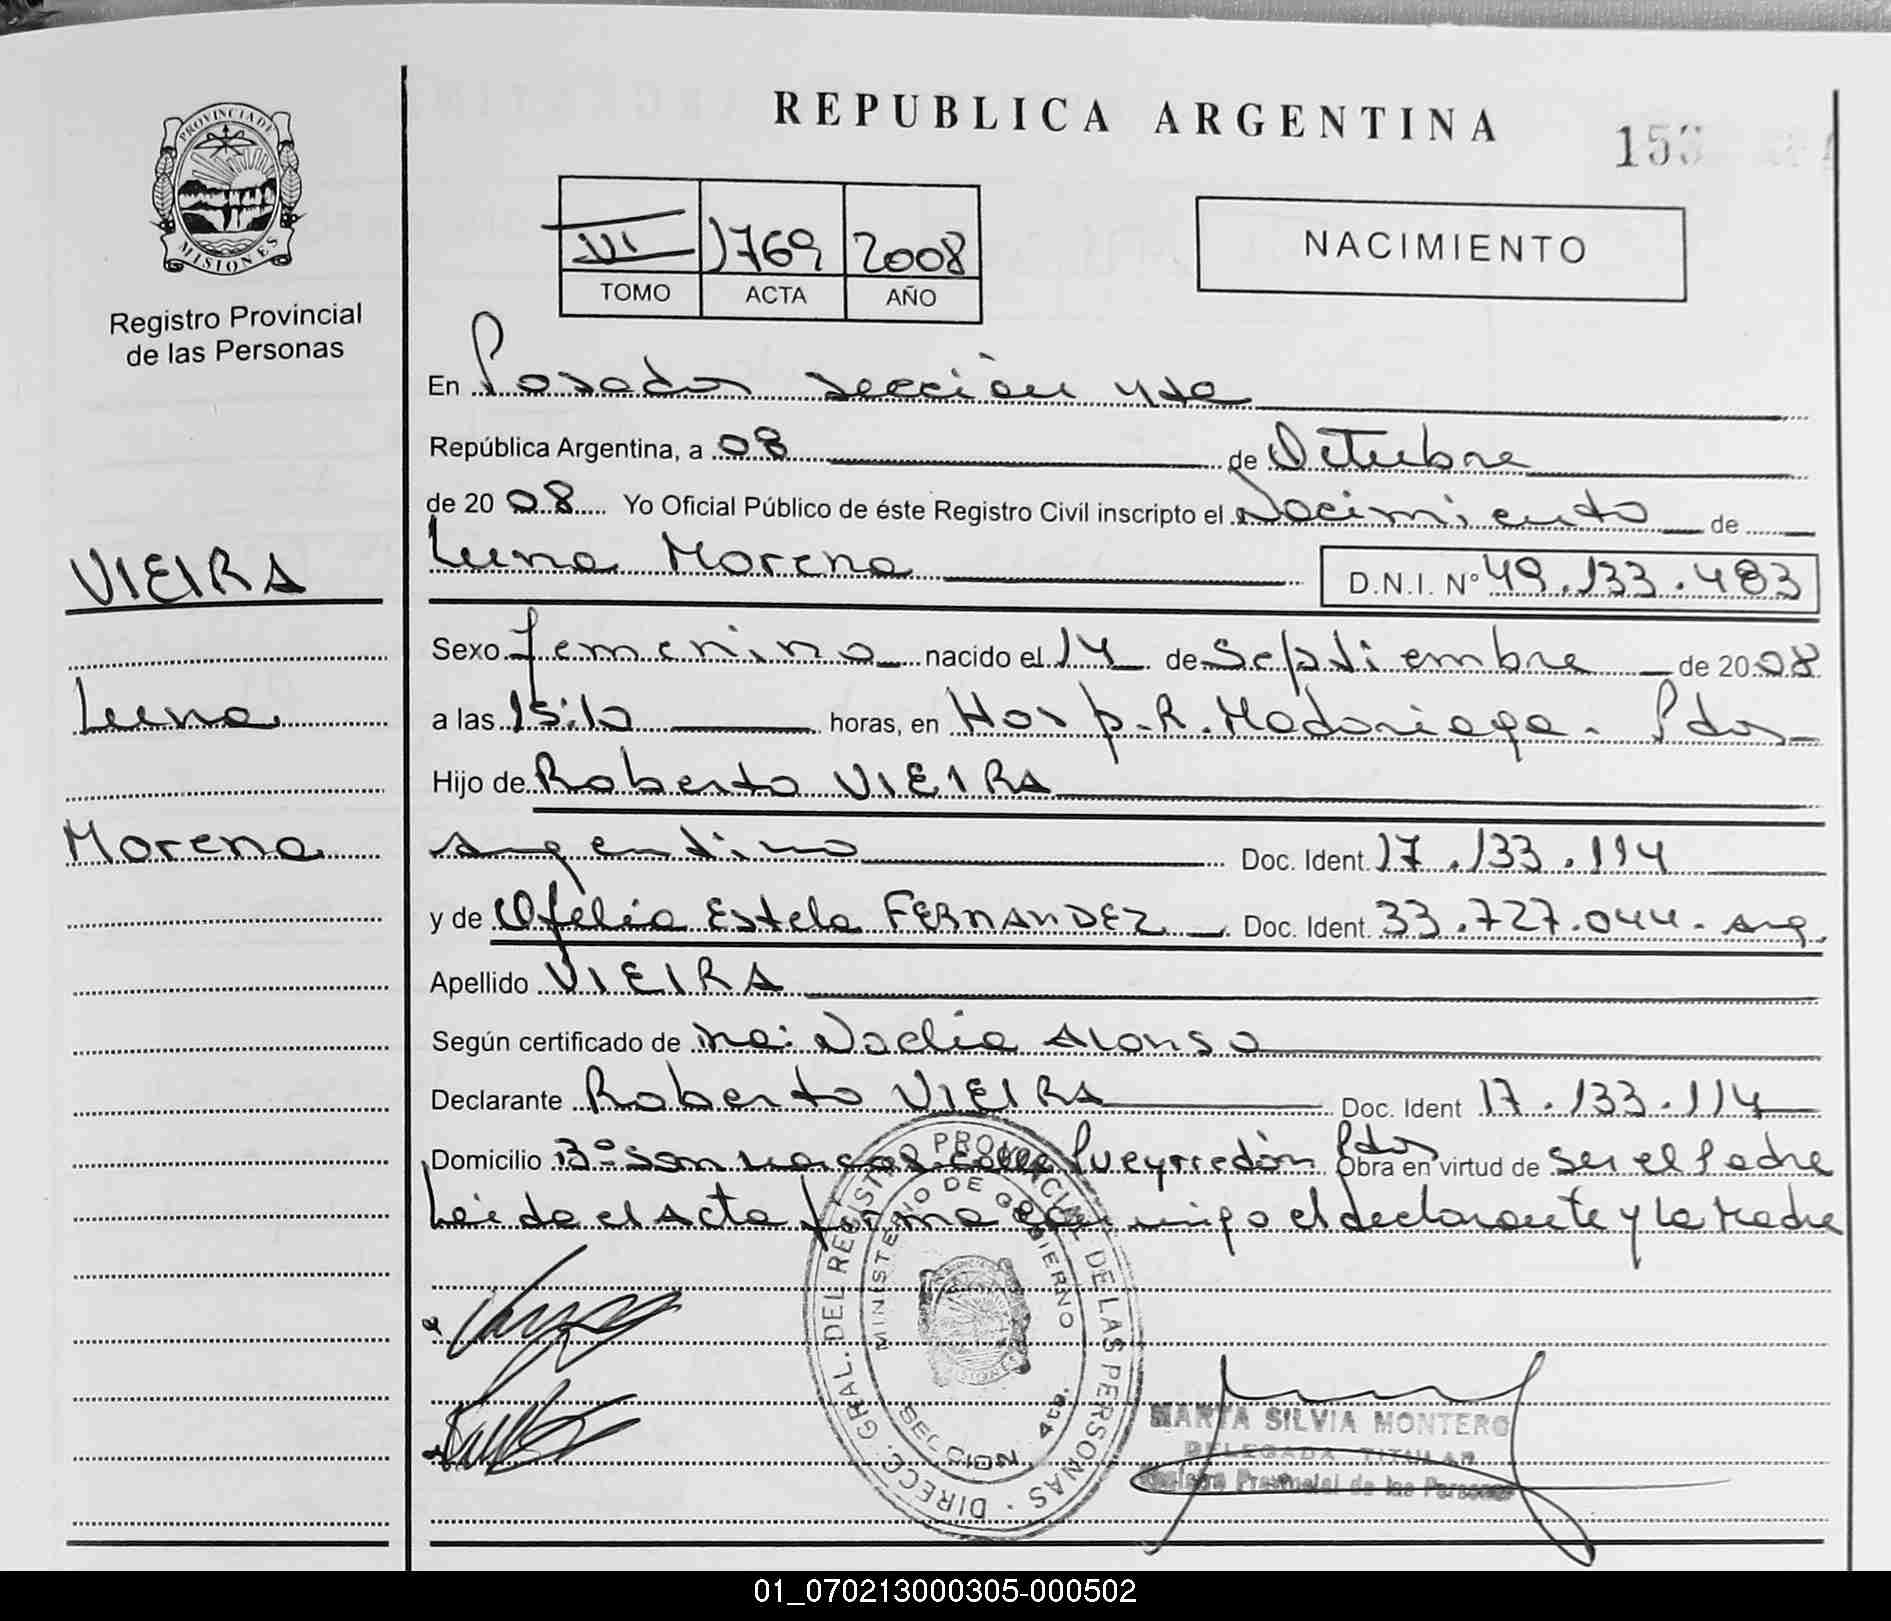 REPUBLICA ARGENTINA
153
PROVINCIA DE
MISIONES
Registro Provincial
de las Personas
III 1769 2008
TOMO ACTA AÑO
NACIMIENTO
En Posadas sección 4ta
República Argentina, a 08 de Octubre
de 20 08 Yo Oficial Público de éste Registro Civil inscripto el Nacimiento de
Luna Morena D.N.I. Nº 49.133.483
VIEIRA
Luna
Morena
Sexo femenino nacido el 14 de Septiembre de 20 08
a las 15:10 horas, en Hosp. R. Madariaga. Pdas
Hijo de Roberto VIEIRA
argentino Doc. Ident. 17.133.114
y de Ofelia Estela FERNANDEZ Doc. Ident. 33.727.044. arg.
Apellido VIEIRA
Según certificado de Noelia Alonso
Declarante Roberto VIEIRA Doc. Ident 17.133.114
Domicilio Bº San Marcos Calle Pueyrredón Pdas Obra en virtud de ser el Padre
Leida el Acta firma conmigo el declarante y la Madre
DIRECC. GRAL. DEL REGISTRO PROVINCIAL DE LAS PERSONAS
MINISTERIO DE GOBIERNO
SECCION 4ta.
MARTA SILVIA MONTERO
DELEGADA TITULAR
Registro Provincial de las Personas
01_070213000305-000502